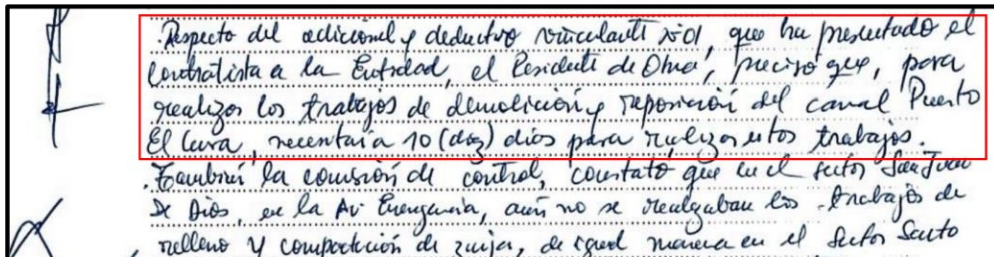 . Respecto del adicional y deductivo vinculante nº01, que ha presentado el
contratista a la Entidad, el Residente de Obra, preciso que, para
realizar los trabajos de demolición y reposición del canal Puerto
El Cura, necesitaria 10 (diez) dias para realizar estos trabajos.
. También la comisión de control, constató que en el sector San Juan
De Dios, en la Av Emergencia, aún no se realizaban los trabajos de
relleno y compactación de zanja, de igual manera en el Sector Santo